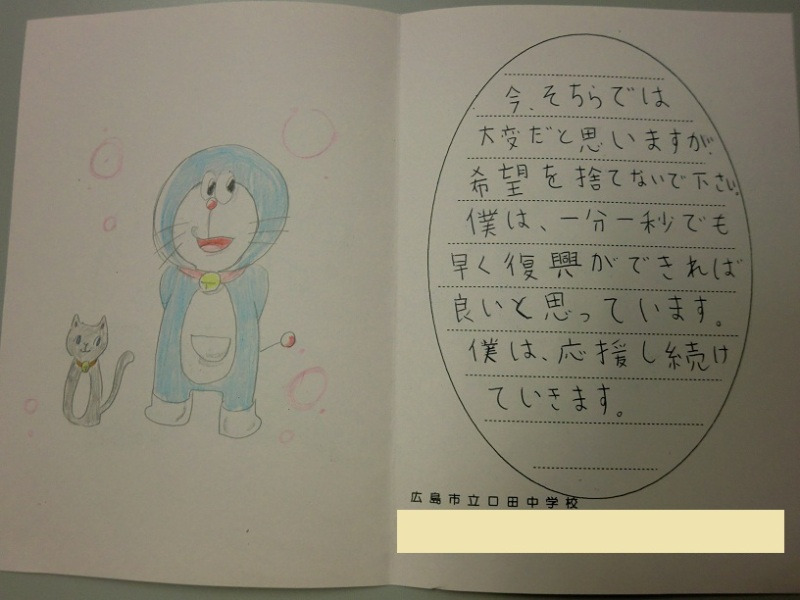 今、そちらでは
大変だと思いますが、
希望を捨てないで下さい。
僕は、一分一秒でも
早く復興ができれば
良いと思っています。
僕は、応援し続け
ていきます。
広島市立口田中学校